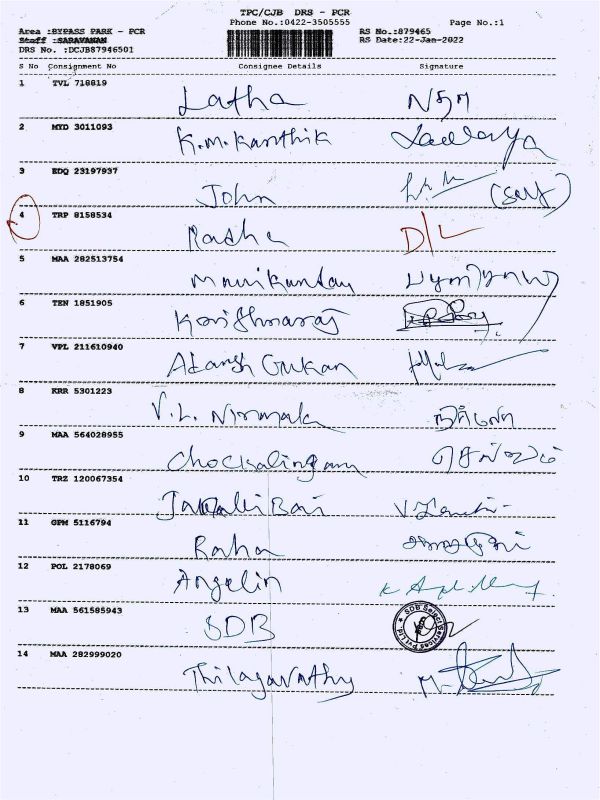 TPC/CJB DRS - PCR
Phone No.:0422-3505555 Page No.:1
Area :BYPASS PARK - PCR RS No.:879465
Staff :SARAVANAN RS Date:22-Jan-2022
DRS No. :DCJB87946501
S No Consignment No Consignee Details Signature
1 TVL 718819
Latha
2 MYD 3011093
K.M.Karthik
3 EDQ 23197937
John (self)
4 TRP 8158534
Radha D/L
5 MAA 282513754
Manikandan
6 TEN 1851905
7 VPL 211610940
Adarsh Gukan
8 KRR 5301223
V.L. Nirmala
9 MAA 564028955
Chockalingam
10 TRZ 120067354
11 GPM 5116794
Raha
12 POL 2178069
Angelin
13 MAA 561585943
SDB SDB Select Services Pvt Ltd.
14 MAA 282999020
Thilagavathy